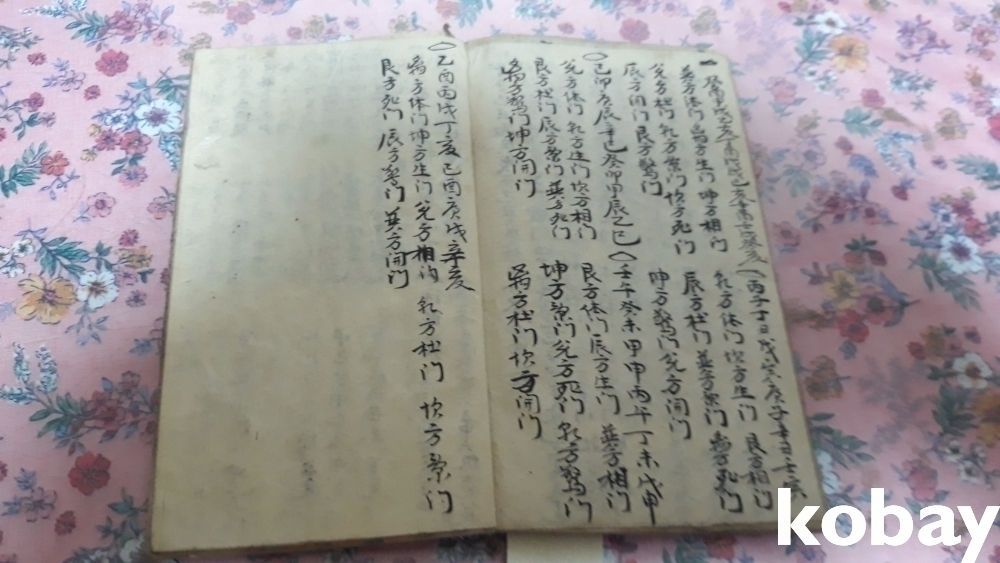 一
丙子丁丑戊寅庚子辛丑壬寅
巽方休门 离方生门 坤方相门 乾方休门 坎方生门 艮方相门
兌方杜门 乾方景门 坎方死门 辰方杜门 巽方景门 离方死门
辰方開门 艮方驚门 坤方驚门 兌方開门
己卯庚辰辛巳癸卯甲辰乙巳 壬午癸未甲申丙午丁未戊申
兌方休门 乾方生门 坎方相门 艮方休门 辰方生门 巽方相门
艮方杜门 辰方景门 巽方死门 坤方景门 兌方死门 乾方驚门
离方驚门 坤方開门 离方杜门 坎方開门
乙酉丙戌丁亥己酉庚戌辛亥
离方休门 坤方生门 兌方相门 乾方杜门 坎方景门
艮方死门 辰方驚门 巽方開门
kobay